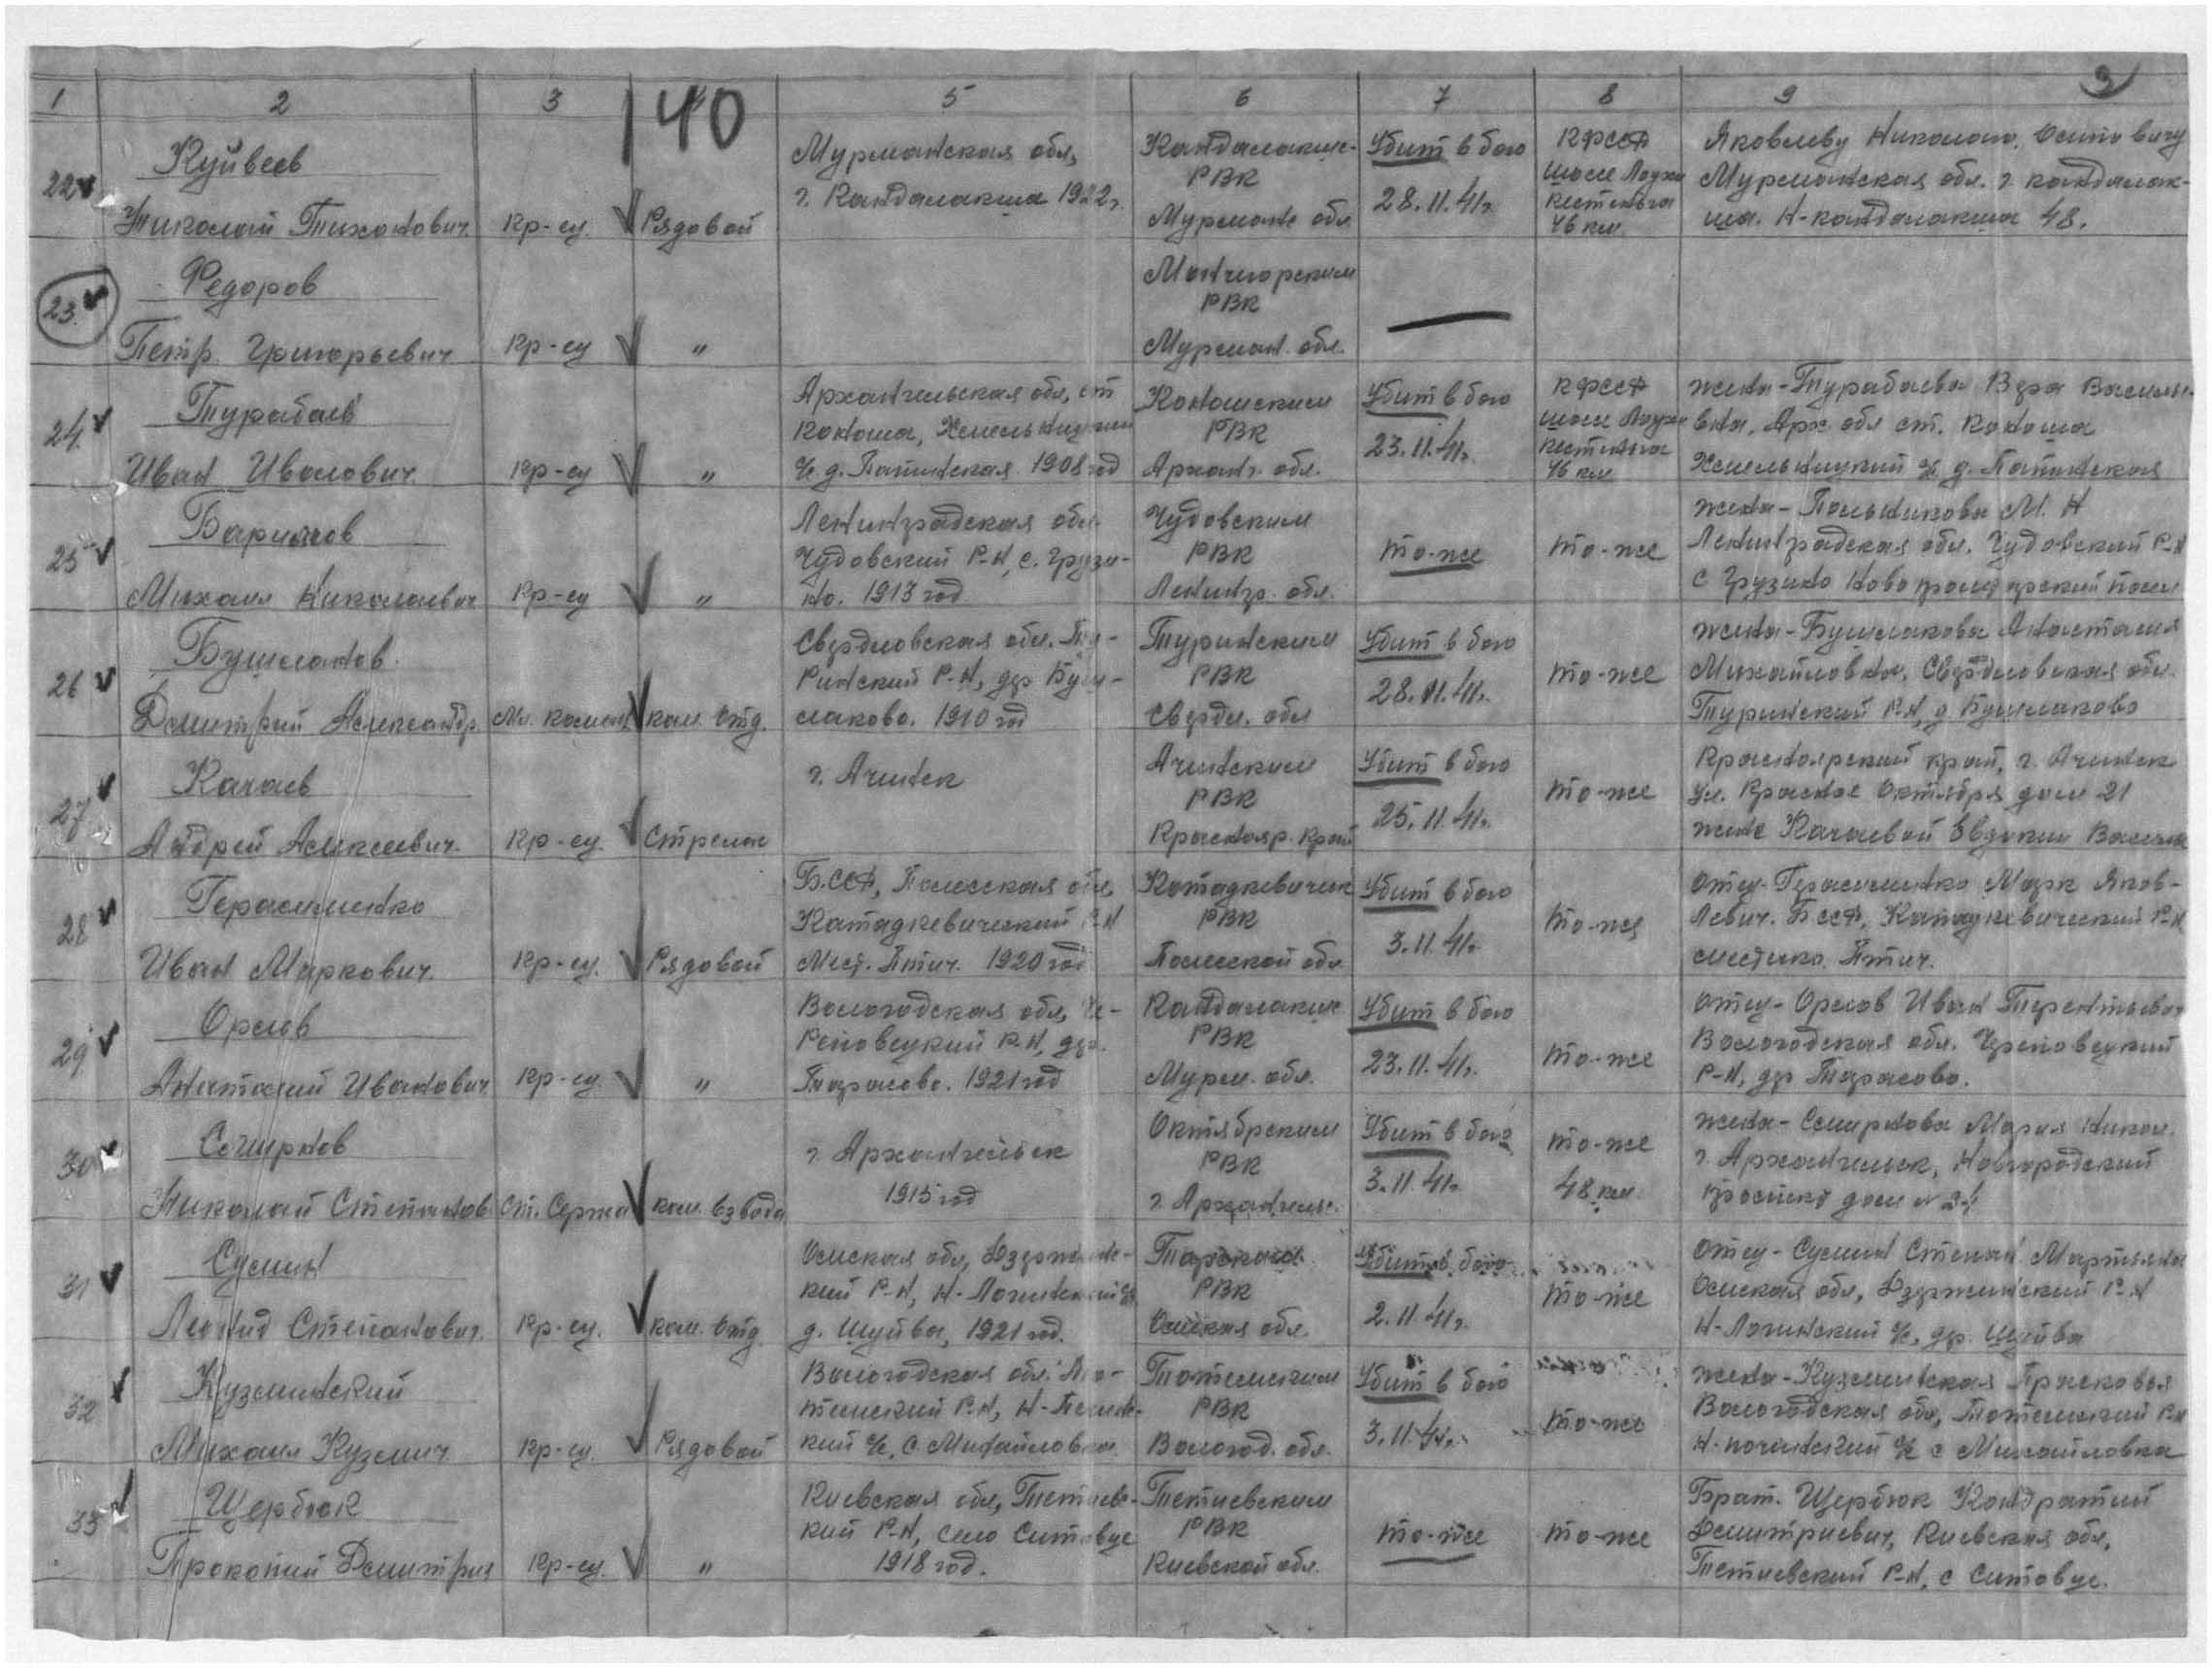 1 2 3 140 5 6 7 8 9 9
22 Куйвеев
Николай Тихонович. Кр-ец. Рядовой
Мурманская обл,
г. Кандалакша 1922г.
Кандалакш-
РВК
Мурманс обл
Убит в бою
28.11.41г.
КФССР
шоссе Лоухи
Кестеньга
46 км.
Яковлеву Николаю Осиповичу
Мурманская обл. г. Кандалак-
ша. Н-Кандалакша 48.
23. Федоров
Петр Григорьевич Кр-ец "
Мончегорским
РВК
Мурман. обл.
—
24. Турабаев
Иван Иванович. Кр-ец "
Архангельская обл, ст
Коноша,
с/с д. Папинская 1908 год
Коношским
РВК
Арханг. обл.
Убит в бою
23.11.41г.
КФССР
шоссе Лоухи
Кестеньга
46 км
жена-Турабаева Вера Василь-
вна, Арх обл ст. Коноша
с/с д. Папинская
25
Михаил Николаевич Кр-ец "
Ленинградская обл.
Чудовский Р-Н, с. Грузи-
но. 1913 год
Чудовским
РВК
Ленингр. обл.
то-же
то-же
жена- М. Н
Ленинградская обл. Чудовский Р-Н
с Грузино
26 Бушланов.
Дмитрий Александр. Мл. команд. ком. отд.
Свердловская обл. Ту-
ринский Р-Н, дер Буш-
лаково. 1910 год
Туринским
РВК
Свердл. обл
Убит в бою
28.11.41г.
то-же
жена-Бушлакова Анастасия
Михайловна, Свердловская обл.
Туринский Р-Н, д Бушлаково
27 Качаев
Андрей Алексеевич. Кр-ец. Стрелок
г. Ачинск
Ачинским
РВК
Краснояр. край
Убит в бою
25.11.41г.
то-же
Красноярский край, г. Ачинск
ул. Красная Октября дом 21
жене Качаевой Евдокии Василь
28 Герасименко
Иван Маркович. Кр-ец. Рядовой
БССР, Полесская обл,
Копаткевический Р-Н
Мест. Птич. 1920 год
РВК
Полесской обл
Убит в бою
3.11.41г.
то-же
отец-Герасименко Марк Яков-
левич. БССР, Р-Н
местечко Птич.
29 Орлов
Анатолий Иванович Кр-ец. "
Вологодская обл, Че-
реповецкий Р-Н, дер.
Тарасово. 1921 год
Кандалакш
РВК
Мурм. обл.
Убит в бою
23.11.41г.
то-же
отец-Орлов Иван Терентьевич
Вологодская обл. Череповецкий
Р-Н, дер Тарасово.
30 Смирнов
Николай Степанов Ст. Сержа ком. взвода
г. Архангельск
1915 год
Октябрским
РВК
г. Архангельс.
Убит в бою
3.11.41г.
то-же
48 км
жена-Смирнова Мария Никол.
г. Архангельск, Новгородский
проспект дом №
31 Сумин
Леонид Степанович. Кр-ец. ком. отд
Омская обл, Дзержинс-
кий Р-Н, Н-Логинский с/с
д. Шуйва, 1921 год.
РВК
Омская обл.
Убит в бою
2.11.41г.
то-же
отец-Сумин Степан
Омская обл, Дзержинский Р-Н
Н-Логинский с/с, дер. Шуйва
32 Кузминский
Михаил Кузмич Кр-ец. Рядовой
Вологодская обл. То-
темский Р-Н,
кий с/с, с. Михайловка.
Тотемским
РВК
Вологод. обл.
Убит в бою
3.11.41г.
то-же
жена-Кузминская Прасковья
Вологодская обл, Тотемский Р-Н
с/с с Михайловка
33 Щербюк
Прокопий Дмитрия Кр-ец. "
Киевская обл, Тетиевс-
кий Р-Н, село
1918 год.
Тетиевским
РВК
Киевской обл.
то-же
то-же
Брат. Щербюк Кондратий
Дмитриевич, Киевская обл,
Тетиевский Р-Н, с